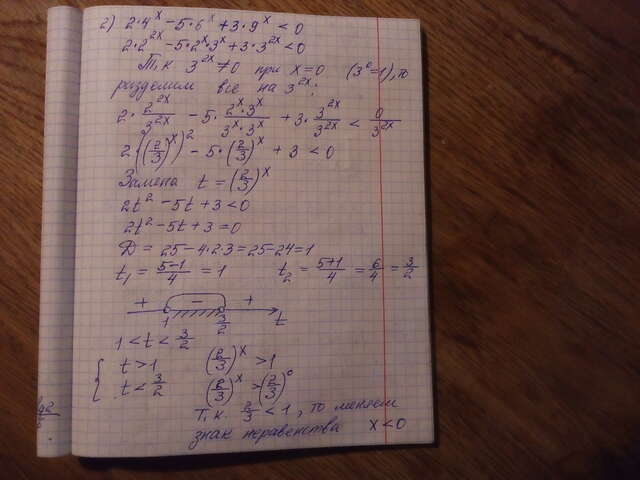 2) 2·4^x − 5·6^x + 3·9^x < 0
2·2^{2x} − 5·2^x·3^x + 3·3^{2x} < 0
Т.к 3^{2x} ≠ 0 при x = 0 (3^0 = 1), то
разделим все на 3^{2x}:
2·\frac{2^{2x}}{3^{2x}} − 5·\frac{2^x·3^x}{3^x·3^x} + 3·\frac{3^{2x}}{3^{2x}} < \frac{0}{3^{2x}}
2((\frac{2}{3})^x)^2 − 5·(\frac{2}{3})^x + 3 < 0
Замена t = (\frac{2}{3})^x
2t^2 − 5t + 3 < 0
2t^2 − 5t + 3 = 0
D = 25 − 4·2·3 = 25 − 24 = 1
t_1 = \frac{5−1}{4} = 1 t_2 = \frac{5+1}{4} = \frac{6}{4} = \frac{3}{2}
+ − +
1 \frac{3}{2} t
1 < t < \frac{3}{2}
{ t > 1 (\frac{2}{3})^x > 1
t < \frac{3}{2} (\frac{2}{3})^x > (\frac{2}{3})^0
Т.к. \frac{2}{3} < 1, то меняем
знак неравенства x < 0